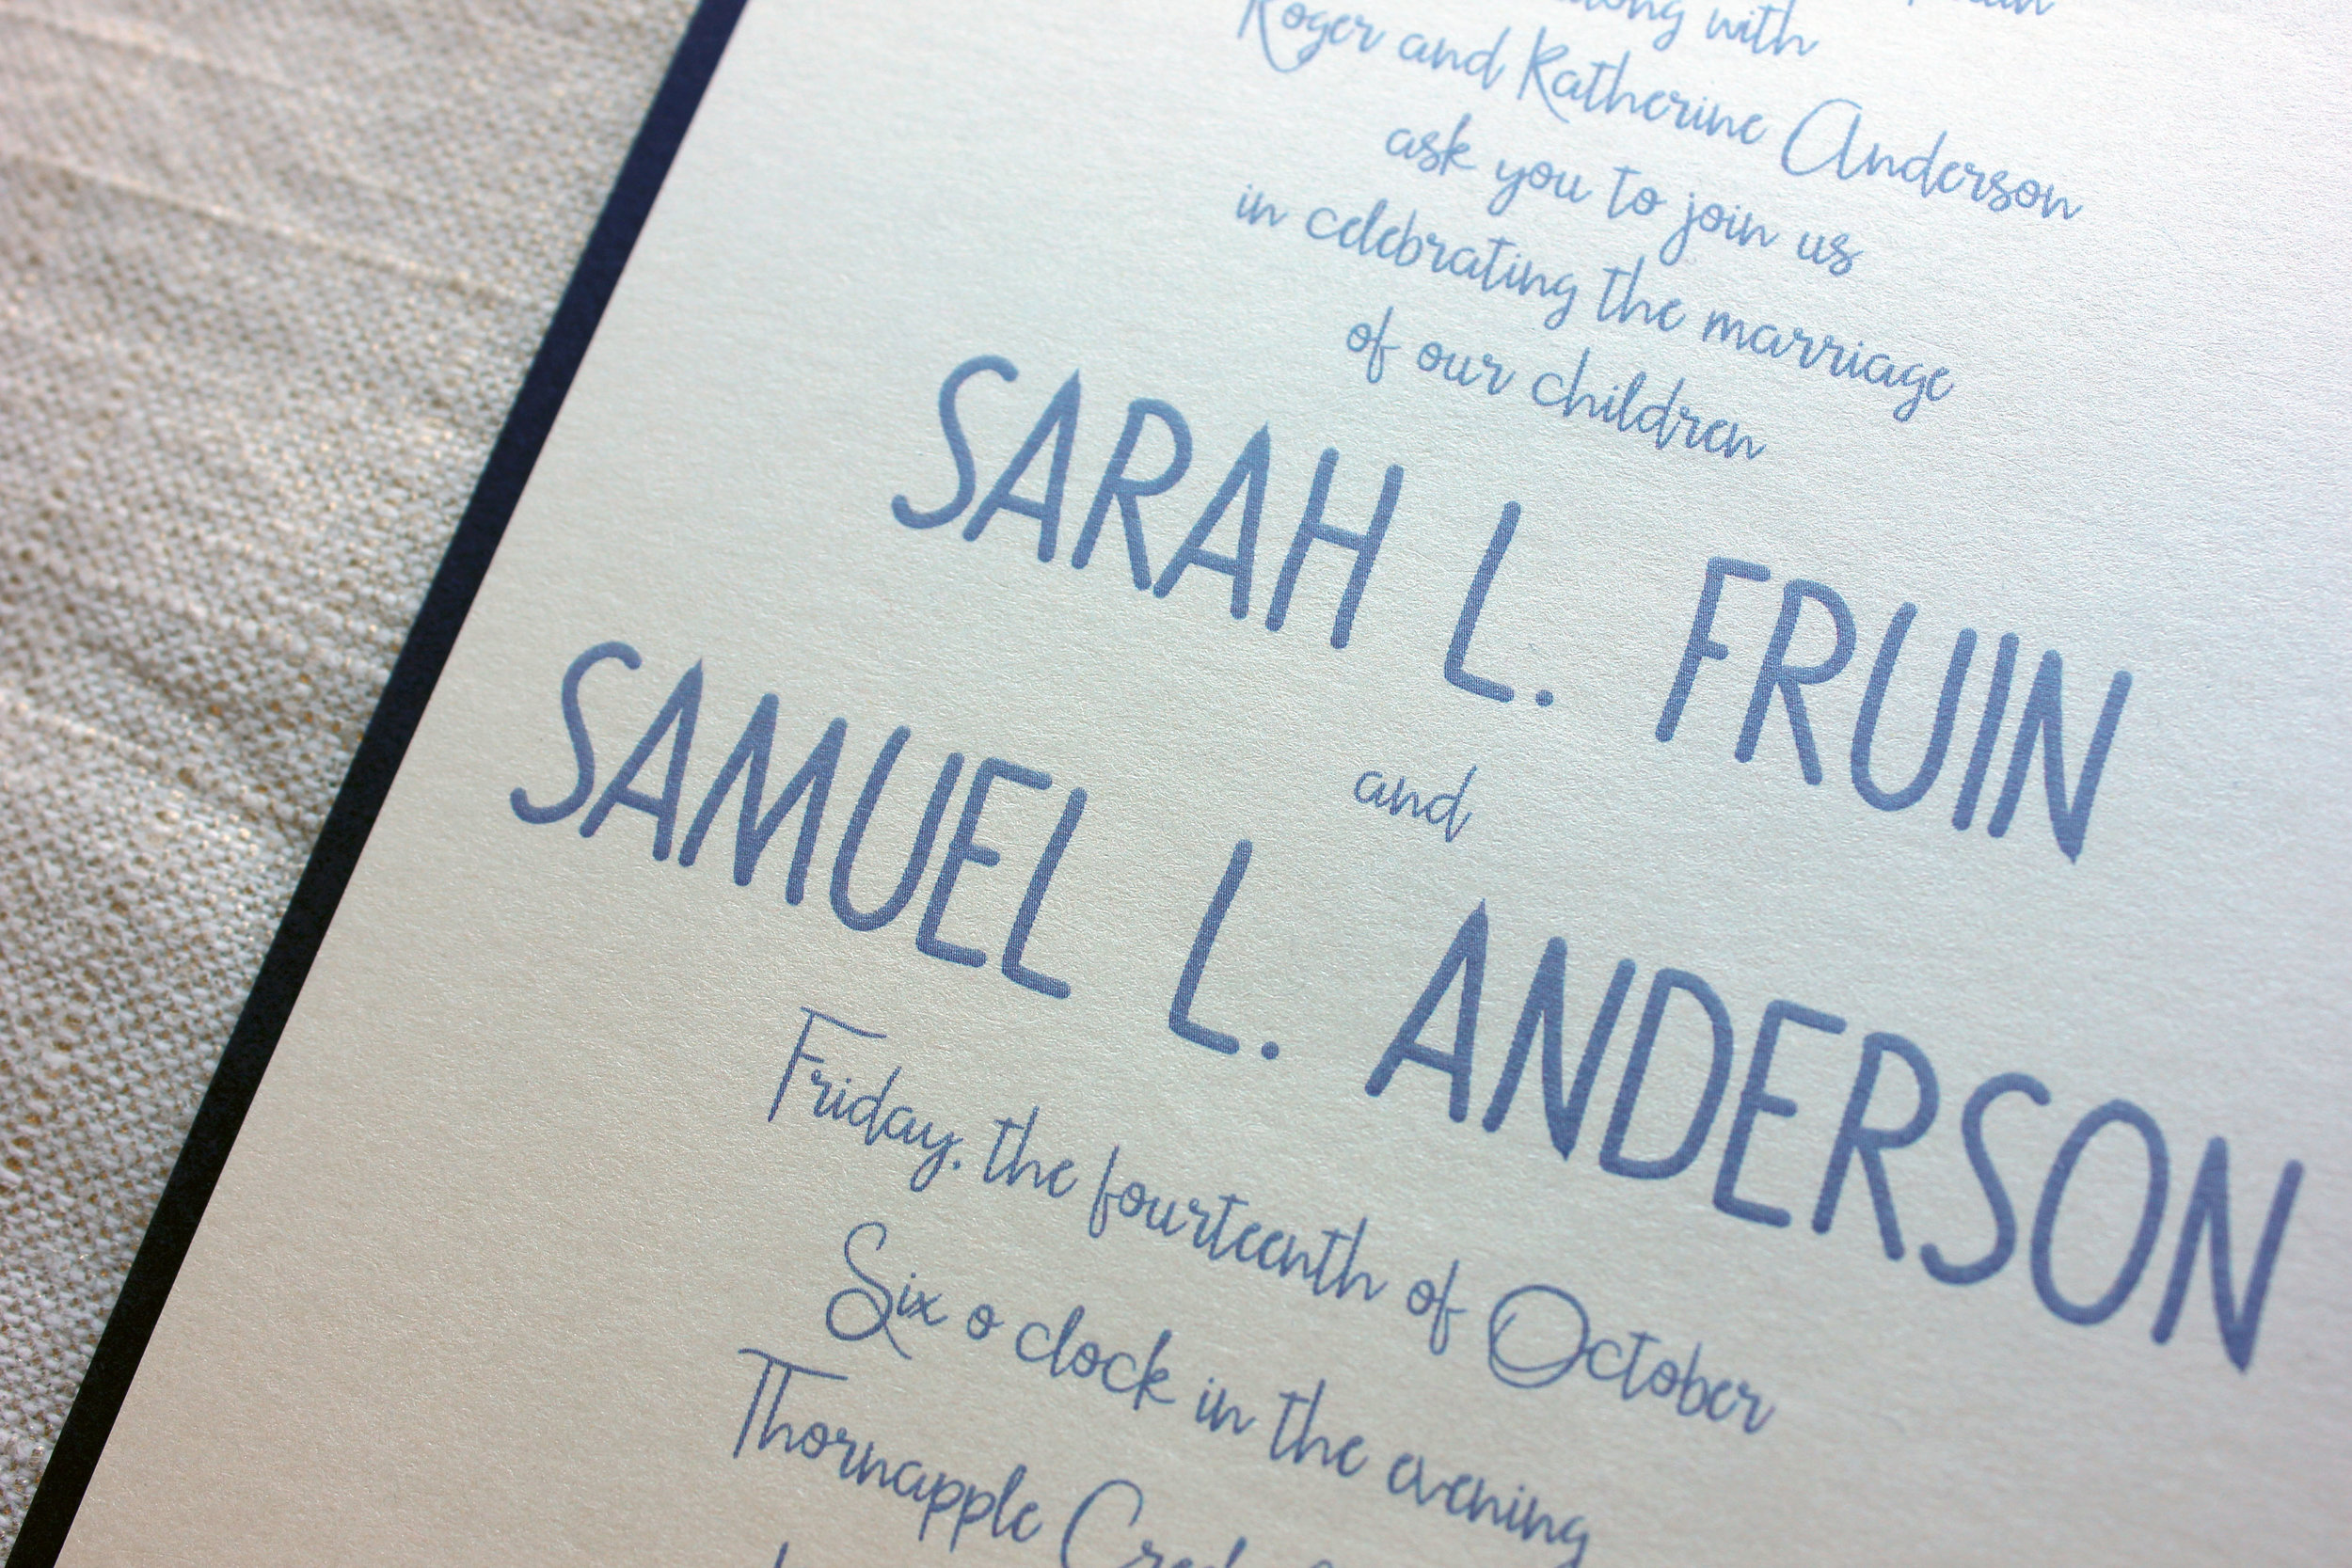 along with
Roger and Katherine Anderson
ask you to join us
in celebrating the marriage
of our children
SARAH L. FRUIN
and
SAMUEL L. ANDERSON
Friday, the fourteenth of October
Six o clock in the evening
Thornapple